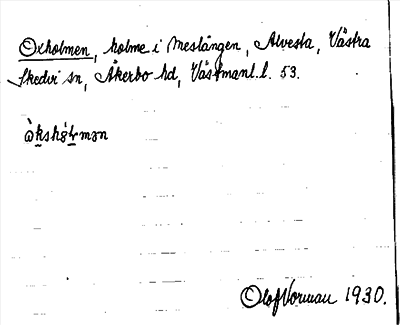 Oxholmen, holme i Meslången, Alvesta, Västra
Skedvi sn, Åkerbo hd, Västmanl. l. 53.
Olof Vorman 1930.